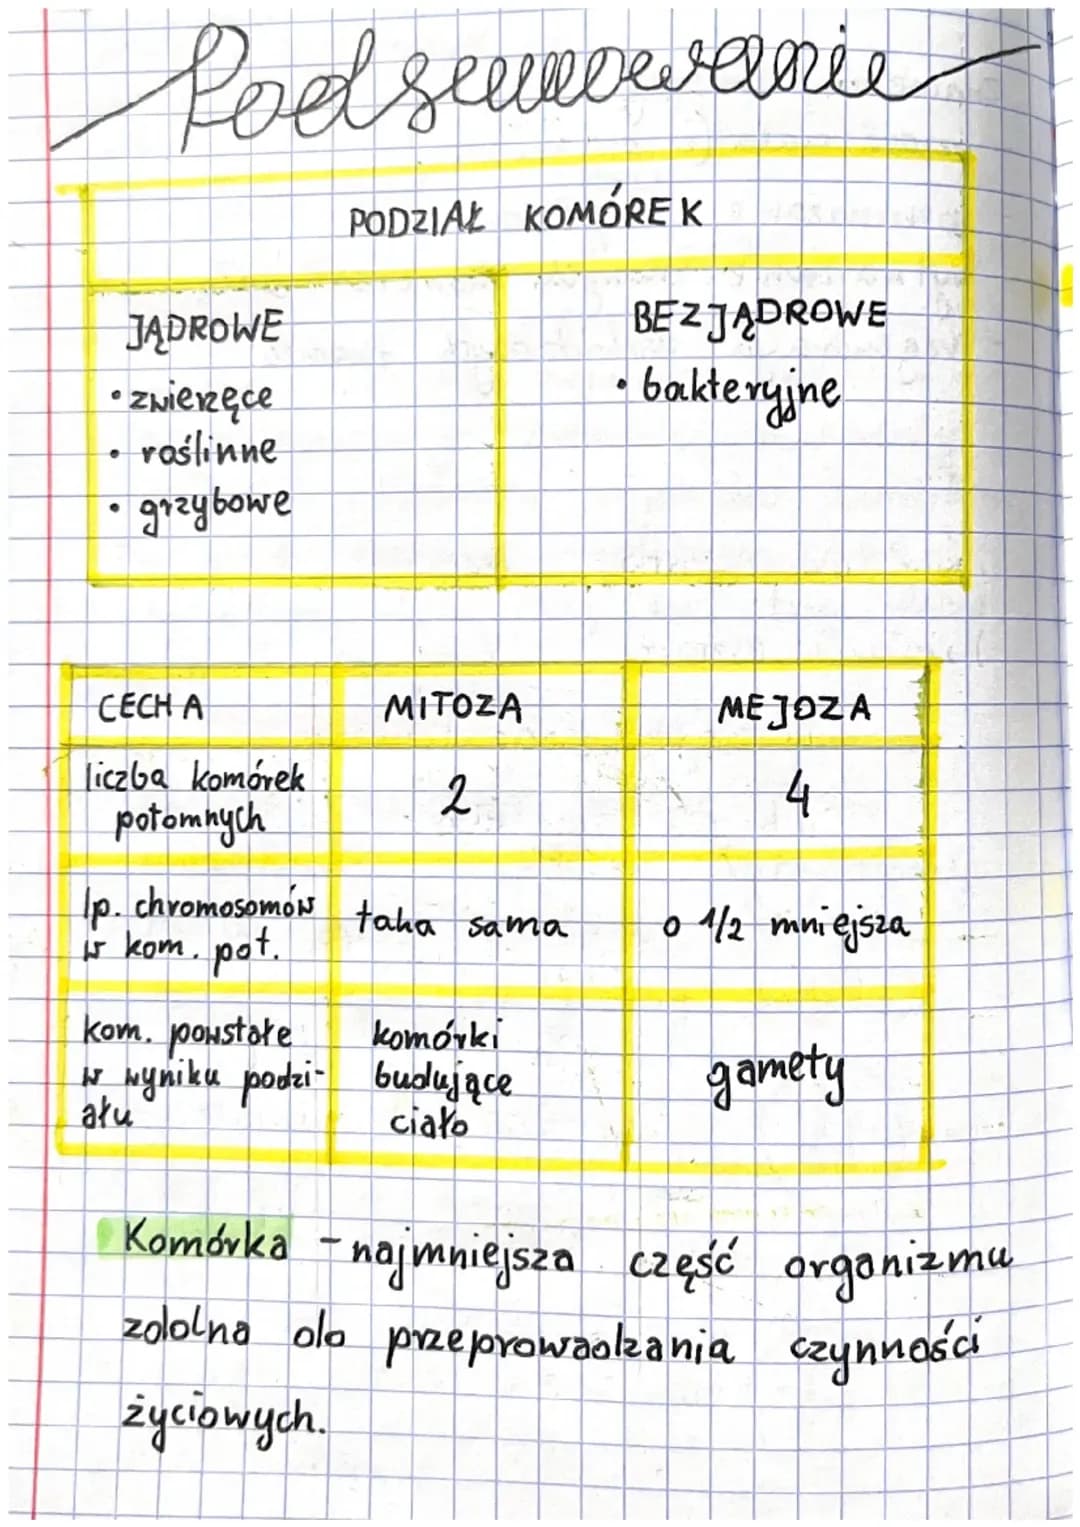 Podsumowanie
PODZIAŁ KOMÓREK
JĄDROWE
• zwierzęce
• roślinne
• grzybowe
BEZJĄDROWE
• bakteryjne
CECHA MITOZA MEJOZA
liczba komórek
potomnych
2
4
lp. chromosomów
w kom. pot.
taka sama
o 1/2 mniejsza
kom. powstałe
w wyniku podzi-
ału
komórki
budujące
ciało
gamety
Komórka - najmniejsza część organizmu
zdolna do przeprowadzania czynności
życiowych.